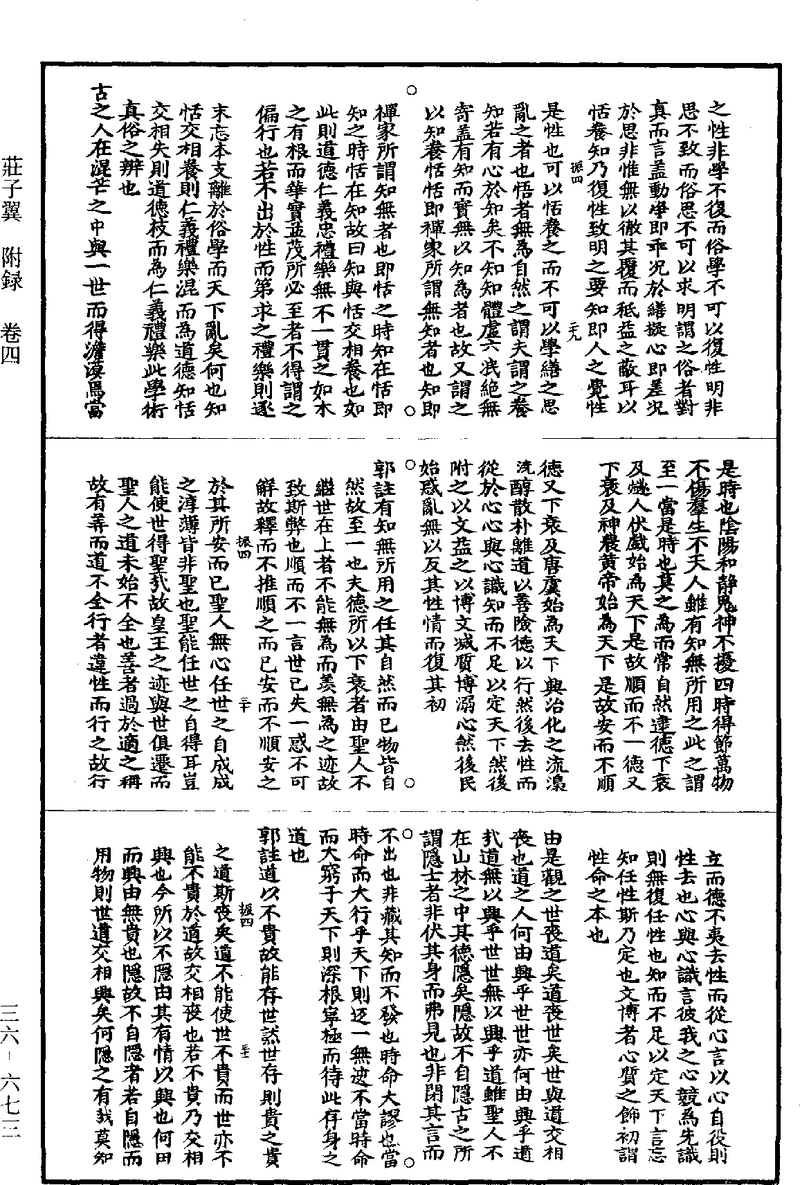 莊子翼　附録　卷四
之性非學不復而俗學不可以復性明非
思不致而俗思不可以求明謂之俗者對
真而言蓋動爭即乖況於繕擬心即差況
於思非惟無以徹其覆而秪益之蔽耳以
恬養知乃復性致明之要知即人之覺性
振四
三九
是性也可以恬養之而不可以學繕之思
亂之者也悟者無為自然之謂夫謂之養
知若有心於知矣不知知體虛六泯絕無
寄蓋有知而實無以知為者也故又謂之
以知養恬恬即禪家所謂無知者也知即
禪家所謂知無者也即恬之時知在恬即
知之時恬在知故曰知與恬交相養也如
此則道德仁義忠禮樂無不一貫之如木
之有根而華實益茂所必至者不得謂之
偏行也若不出於性而第求之禮樂則逐
末忘本支離於俗學而天下亂矣何也知
恬交相養則仁義禮樂混而為道德知恬
交相失則道德枝而為仁義禮樂此學術
真俗之辨也
古之人在混芒之中與一世而得澹漠焉當
是時也陰陽和靜鬼神不擾四時得節萬物
不傷羣生不夭人雖有知無所用之此之謂
至一當是時也莫之為而常自然逮德下衰
及燧人伏戲始為天下是故順而不一德又
下衰及神農黃帝始為天下是故安而不順
德又下衰及唐虞始為天下興治化之流澆
醇散朴離道以善險德以行然後去性而
從於心心與心識知而不足以定天下然後
附之以文益之以博文滅質博溺心然後民
始惑亂無以反其性情而復其初
郭註有知無所用之任其自然而已物皆自
然故至一也夫德所以下衰者由聖人不
繼世在上者不能無為而羨無為之迹故
致斯弊也順而不一言世已失一惑不可
解故釋而不推順之而已安而不順安之
振四
三十
於其所安而已聖人無心任世之自成成
之淳薄皆非聖也聖能任世之自得耳豈
能使世得聖哉故皇王之迹與世俱遷而
聖人之道未始不全也善者過於適之稱
故有善而道不全行者違性而行之故行
立而德不夷去性而從心言以心自役則
性去也心與心識言彼我之心競為先識
則無復任性也知而不足以定天下言忘
知任性斯乃定也文博者心質之飾初謂
性命之本也
由是觀之世喪道矣道喪世矣世與道交相
喪也道之人何由興乎世世亦何由興乎道
哉道無以興乎世世無以興乎道雖聖人不
在山林之中其德隱矣隱故不自隱古之所
謂隱士者非伏其身而弗見也非閉其言而
不出也非藏其知而不發也時命大謬也當
時命而大行乎天下則返一無迹不當時命
而大窮于天下則深根寧極而待此存身之
道也
郭註道以不貴故能存世然世存則貴之貴
振四
三十一
之道斯喪矣道不能使世不貴而世亦不
能不貴於道故交相喪也若不貴乃交相
興也今所以不隱由其有情以興也何由
而興由無貴也隱故不自隱者若自隱而
用物則世道交相興矣何隱之有哉莫知
三六－六七三